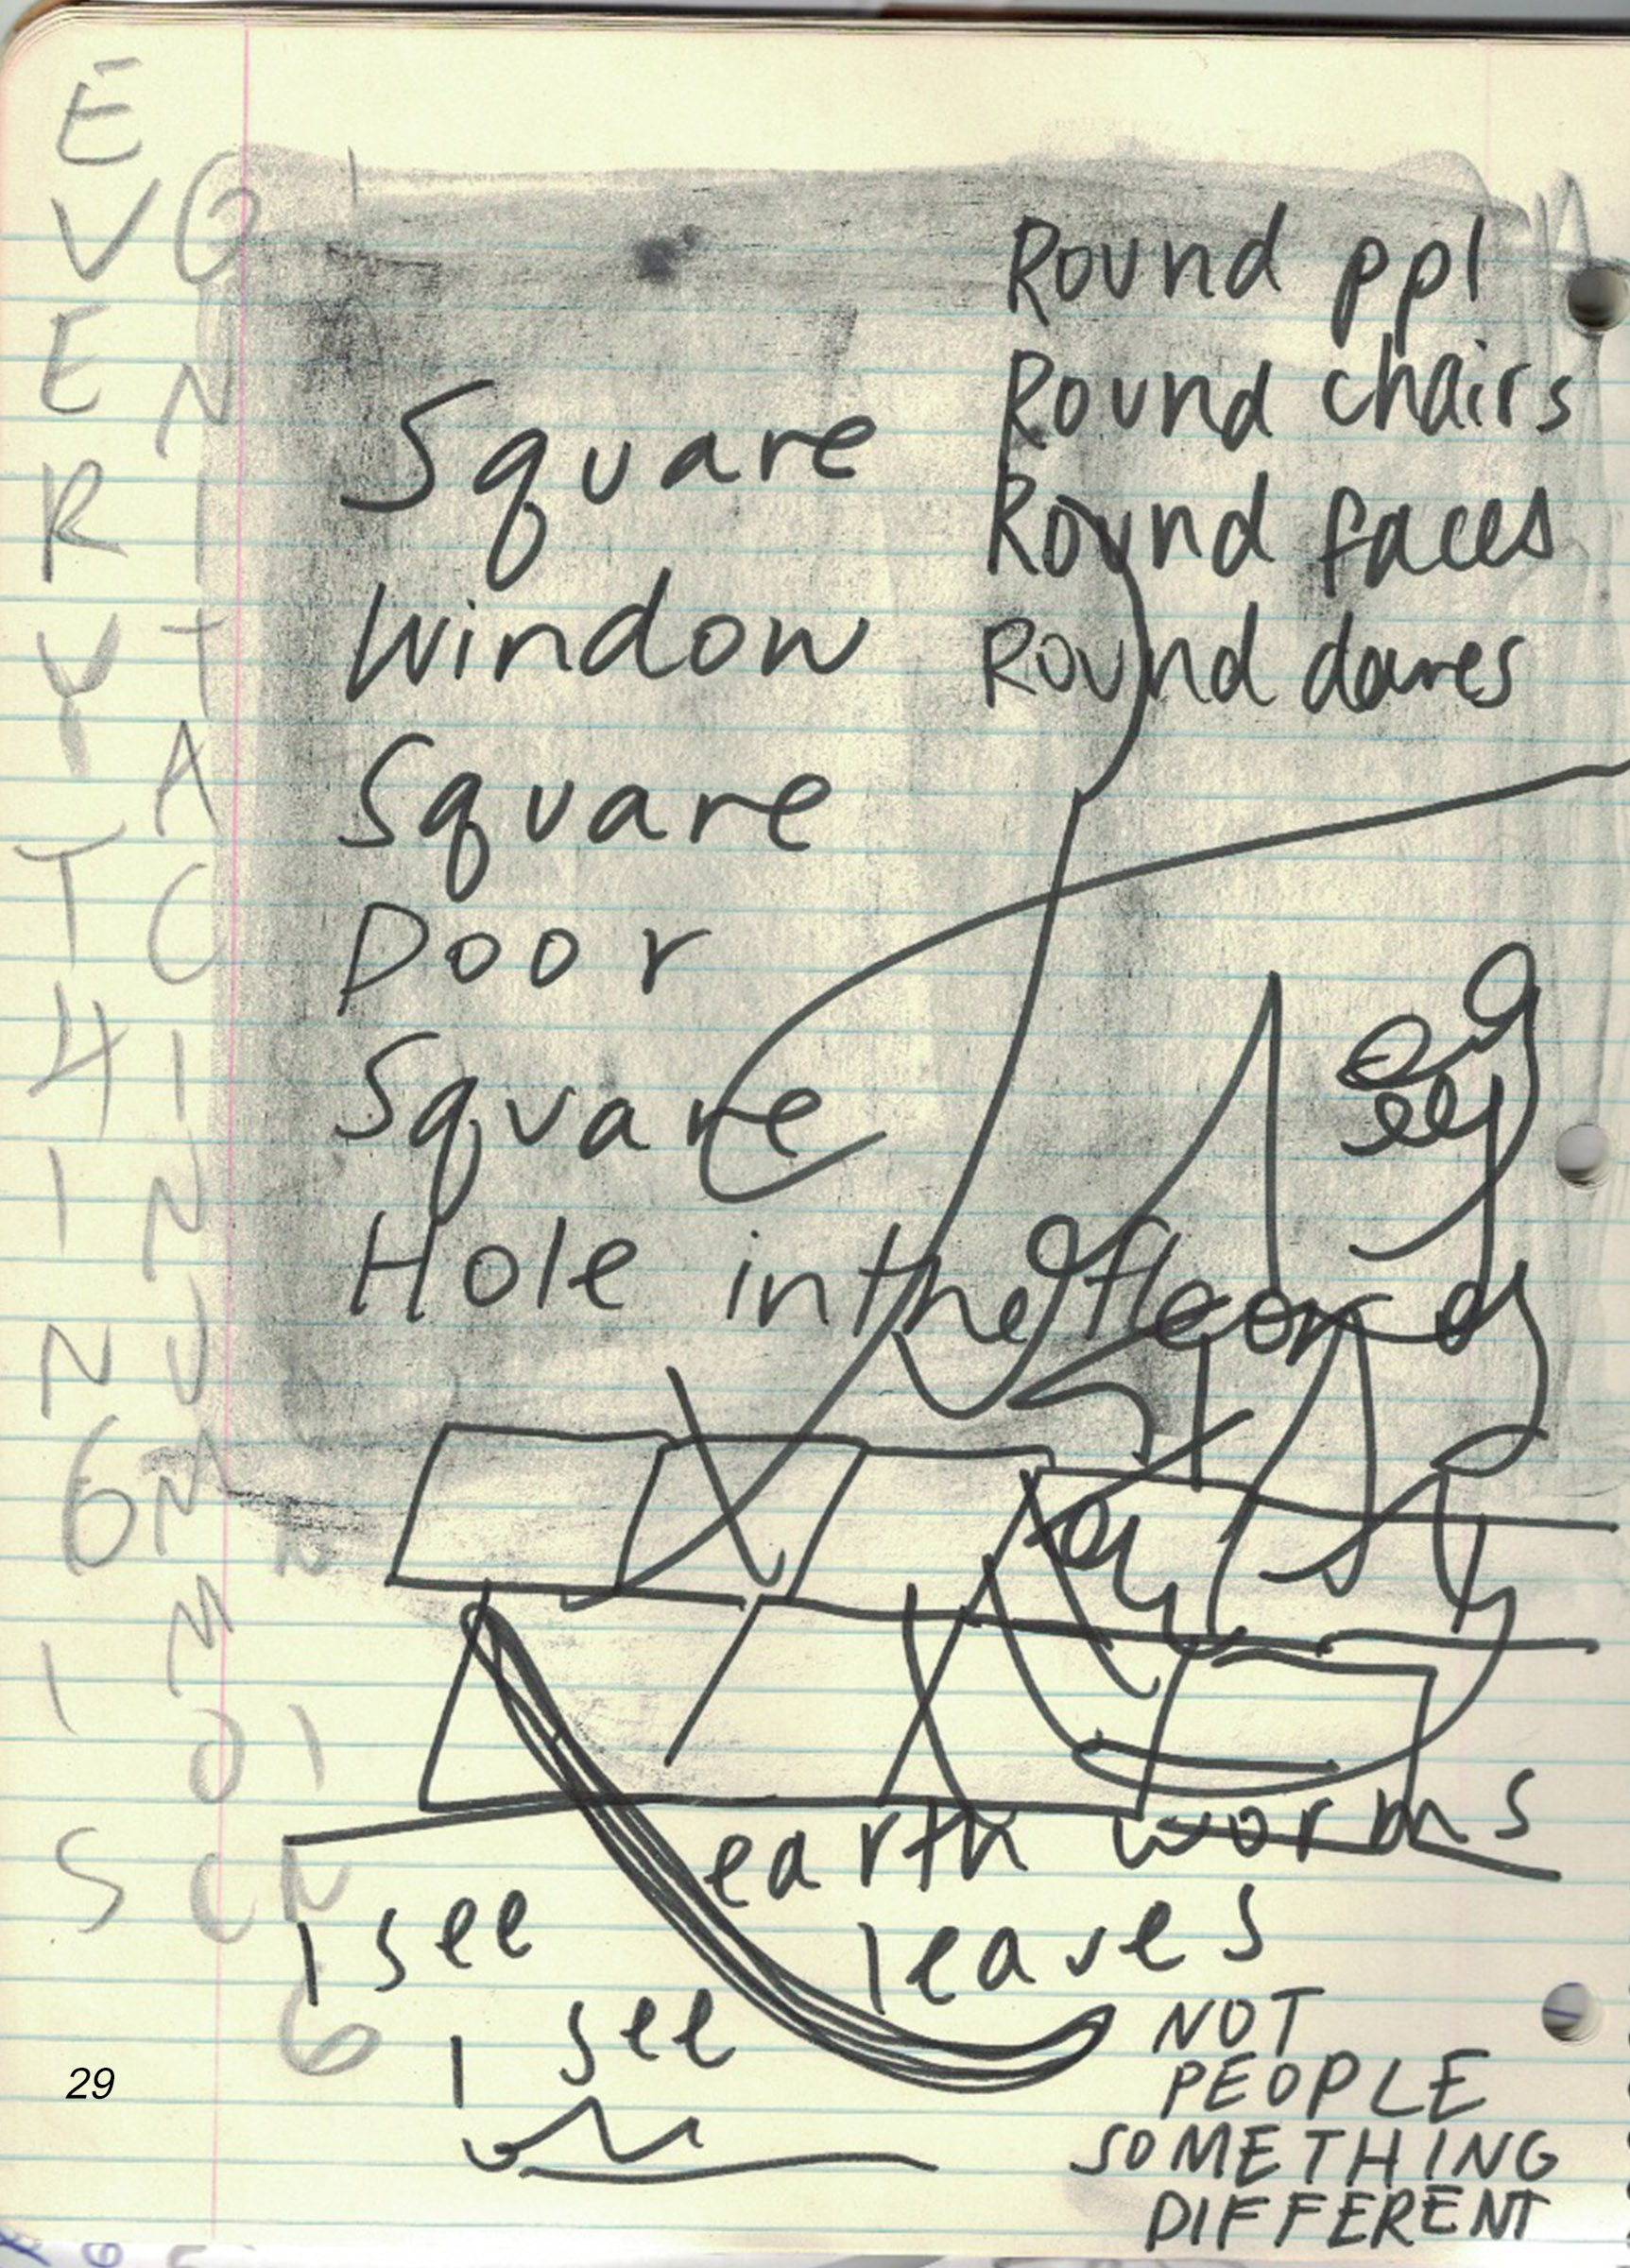 EVERYT4IN6 IS
COMMUNICATING
Round ppl
Round chairs
Round faces
Round
Square
Window
Square
Door
Square
Hole in the floor
earth worms
I see
leaves
I see
NOT
PEOPLE
SOMETHING
DIFFERENT
29